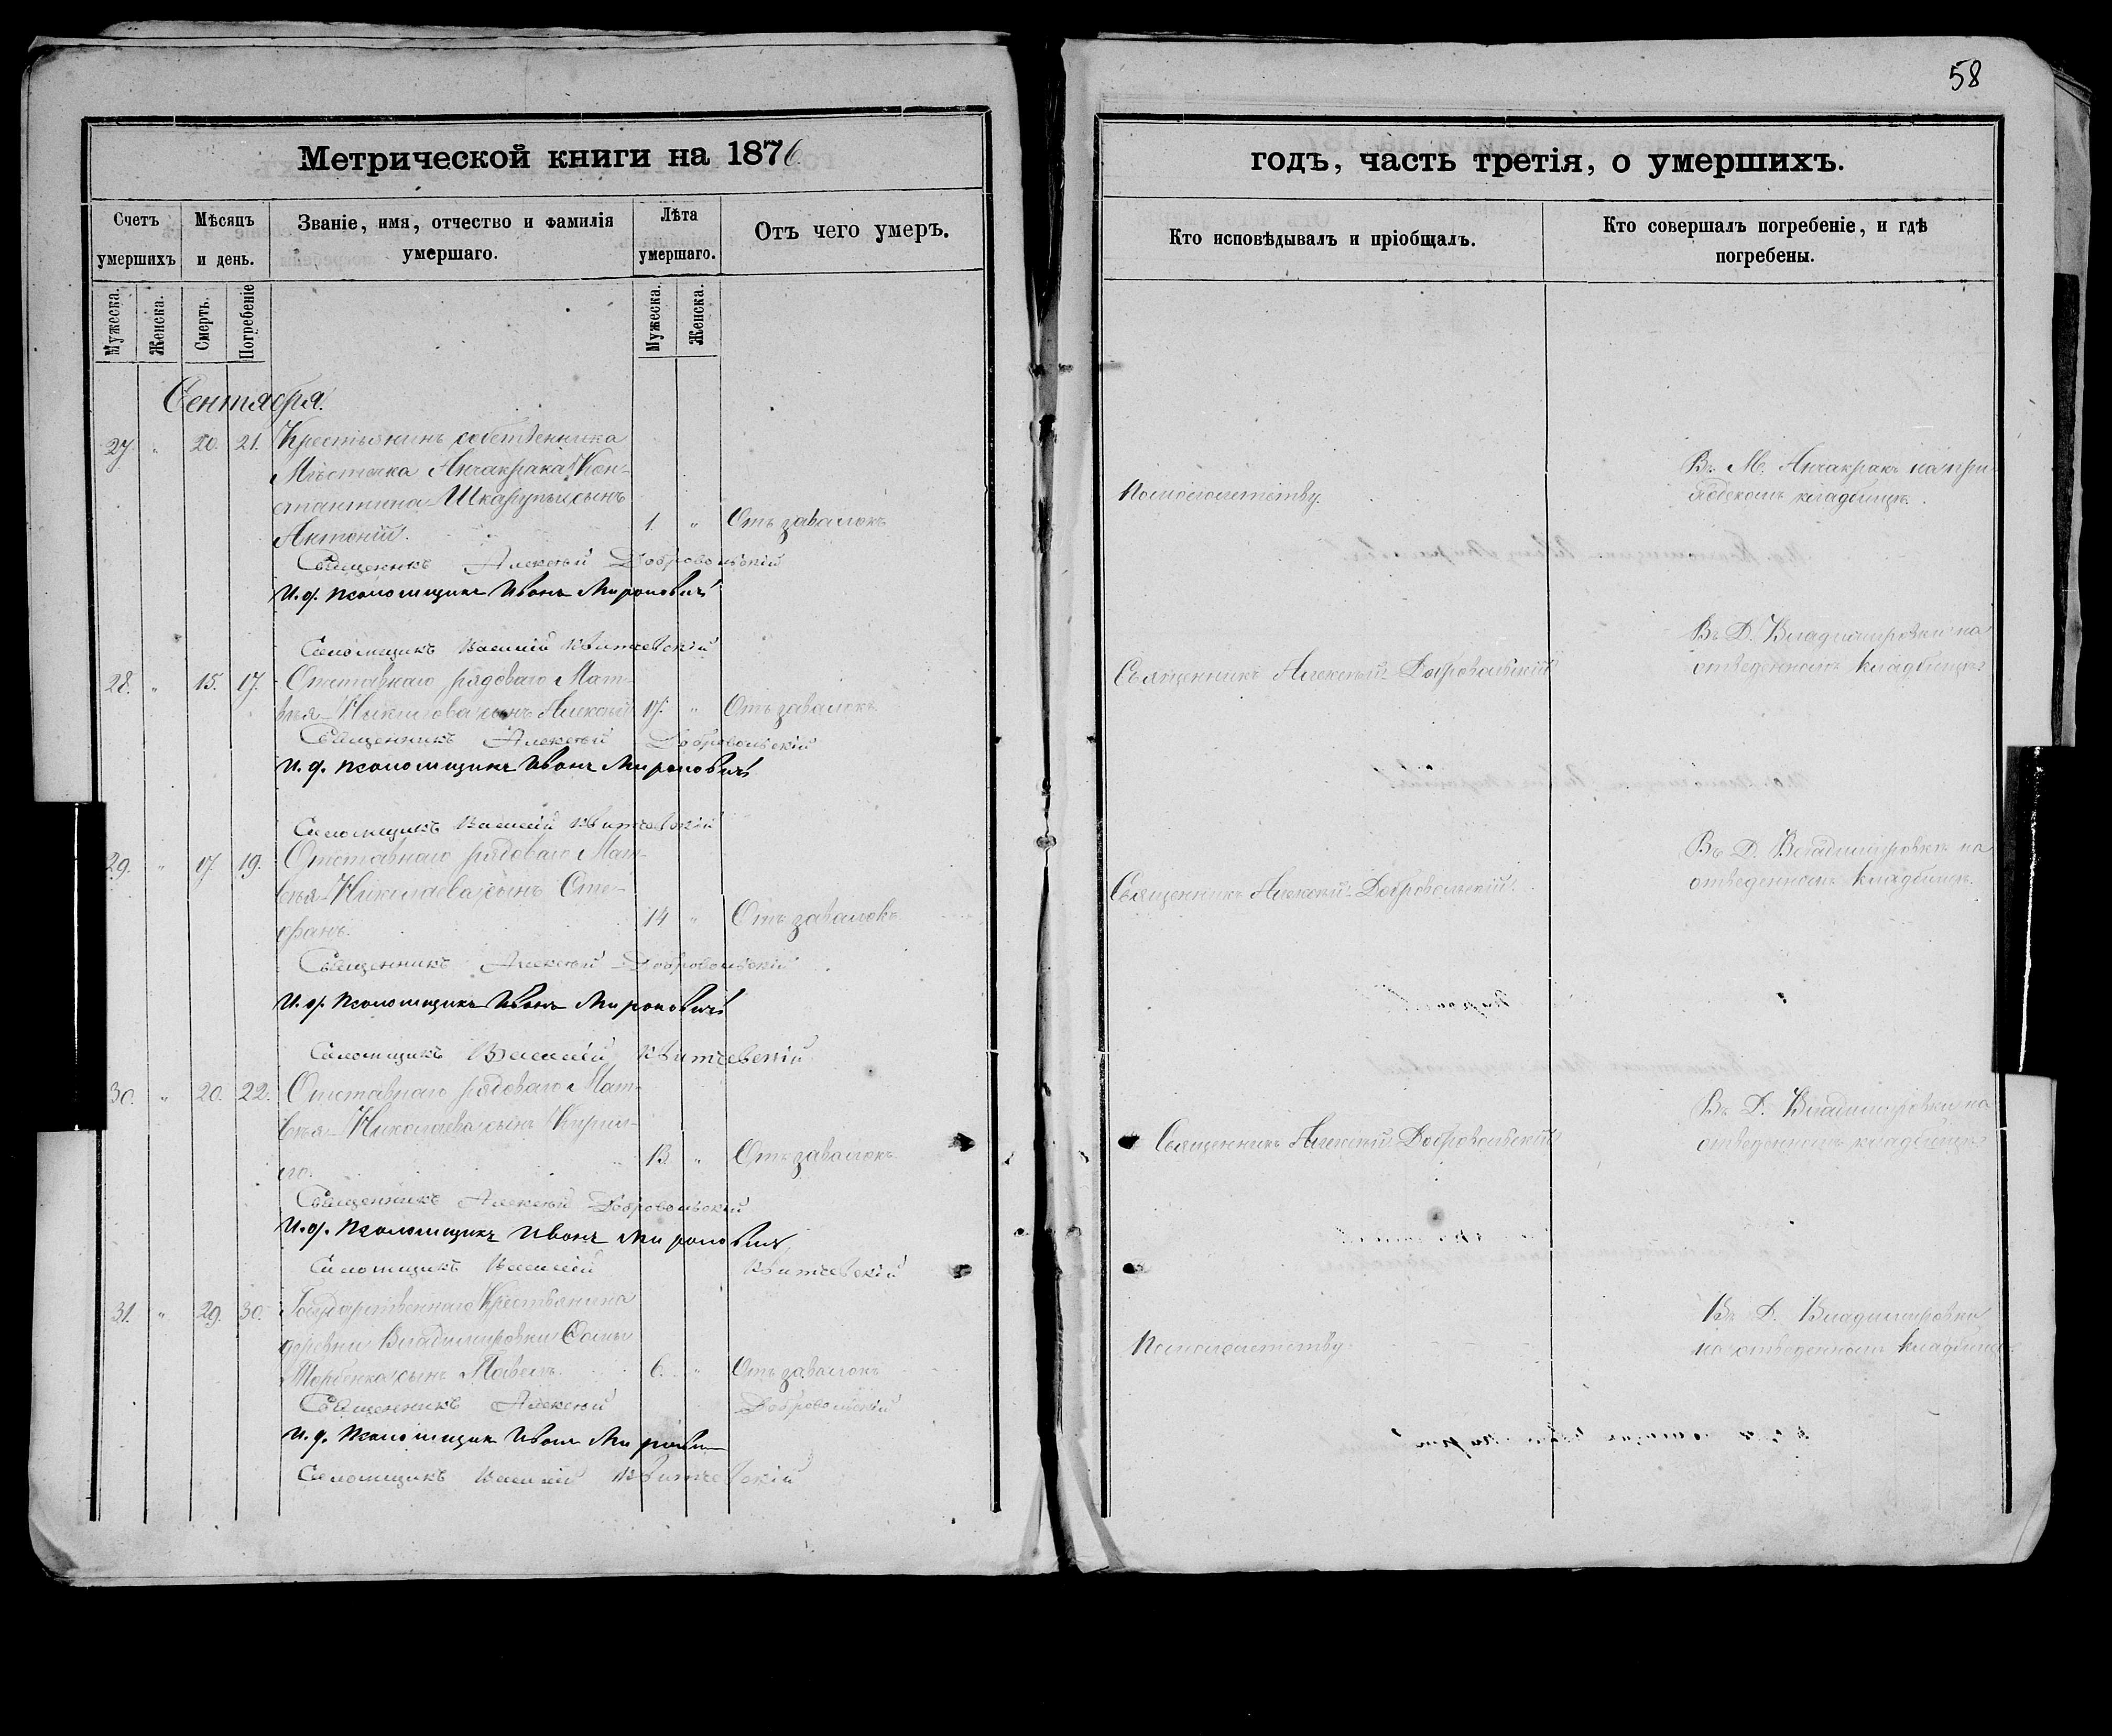 58
Метрической книги на 1876
годъ, часть третія, о умершихъ.
Счетъ умершихъ
Мѣсяцъ и день.
Званіе, имя, отчество и фамилія умершаго.
Лѣта умершаго.
Отъ чего умеръ.
Кто исповѣдывалъ и пріобщалъ.
Кто совершалъ погребеніе, и гдѣ погребены.
Мужеска.
Женска.
Смерть.
Погребеніе
Мужеска.
Женска.
Сентября.
27. " 20. 21. Крестьянинъ собственника
Мѣстечка Анчакрака Кон-
стантина Шкарупы сынъ
Антоній. 1. " Отъ завалокъ
По малолетству.
Въ М. Анчакракъ на при
кладбищѣ.
Священикъ Алексѣй Добровольскій
И. д. псаломщика Иванъ Мироновичъ
Псаломщикъ Василій Квитчевскій
28. " 15. 17. Отставнаго рядоваго Мат-
вѣя сынъ Алексѣй 17. " Отъ завалокъ
Священникъ Алексѣй Добровольскій
Въ Д. Владимировки на
отведенномъ кладбищѣ
Священникъ Алексѣй Добровольскій
И. д. псаломщика Иванъ Мироновичъ
Псаломщикъ Василій Квитчевскій
29. " 17. 19. Отставнаго рядоваго Мат-
вѣя Николаева сынъ Сте-
фанъ. 14 " Отъ завалокъ
Священникъ Алексѣй Добровольскій
Въ Д. Владимировки на
отведенномъ кладбищѣ.
Священникъ Алексѣй Добровольскій
И. д. псаломщика Иванъ Мироновичъ
Псаломщикъ Василій Квитчевскій
30. " 20. 22. Отставнаго рядоваго Мат-
вѣя Николаева сынъ Кирил-
ло. 13. " Отъ завалокъ
Священникъ Алексѣй Добровольскій
Въ Д. Владимировки на
отведенномъ кладбищѣ
Священникъ Алексѣй Добровольскій
И. д. псаломщика Иванъ Мироновичъ
Псаломщикъ Василій Квитчевскій
31. " 29. 30. Государственнаго Крестьянина
деревни Владимировки Фомы
сынъ Павелъ. 6. " Отъ завалокъ
По малолетству
Въ Д. Владимировки
на отведенномъ кладбищѣ
Священникъ Алексѣй Добровольскій
И. д. псаломщика Иванъ Миронович
Псаломщикъ Василій Квитчевскій